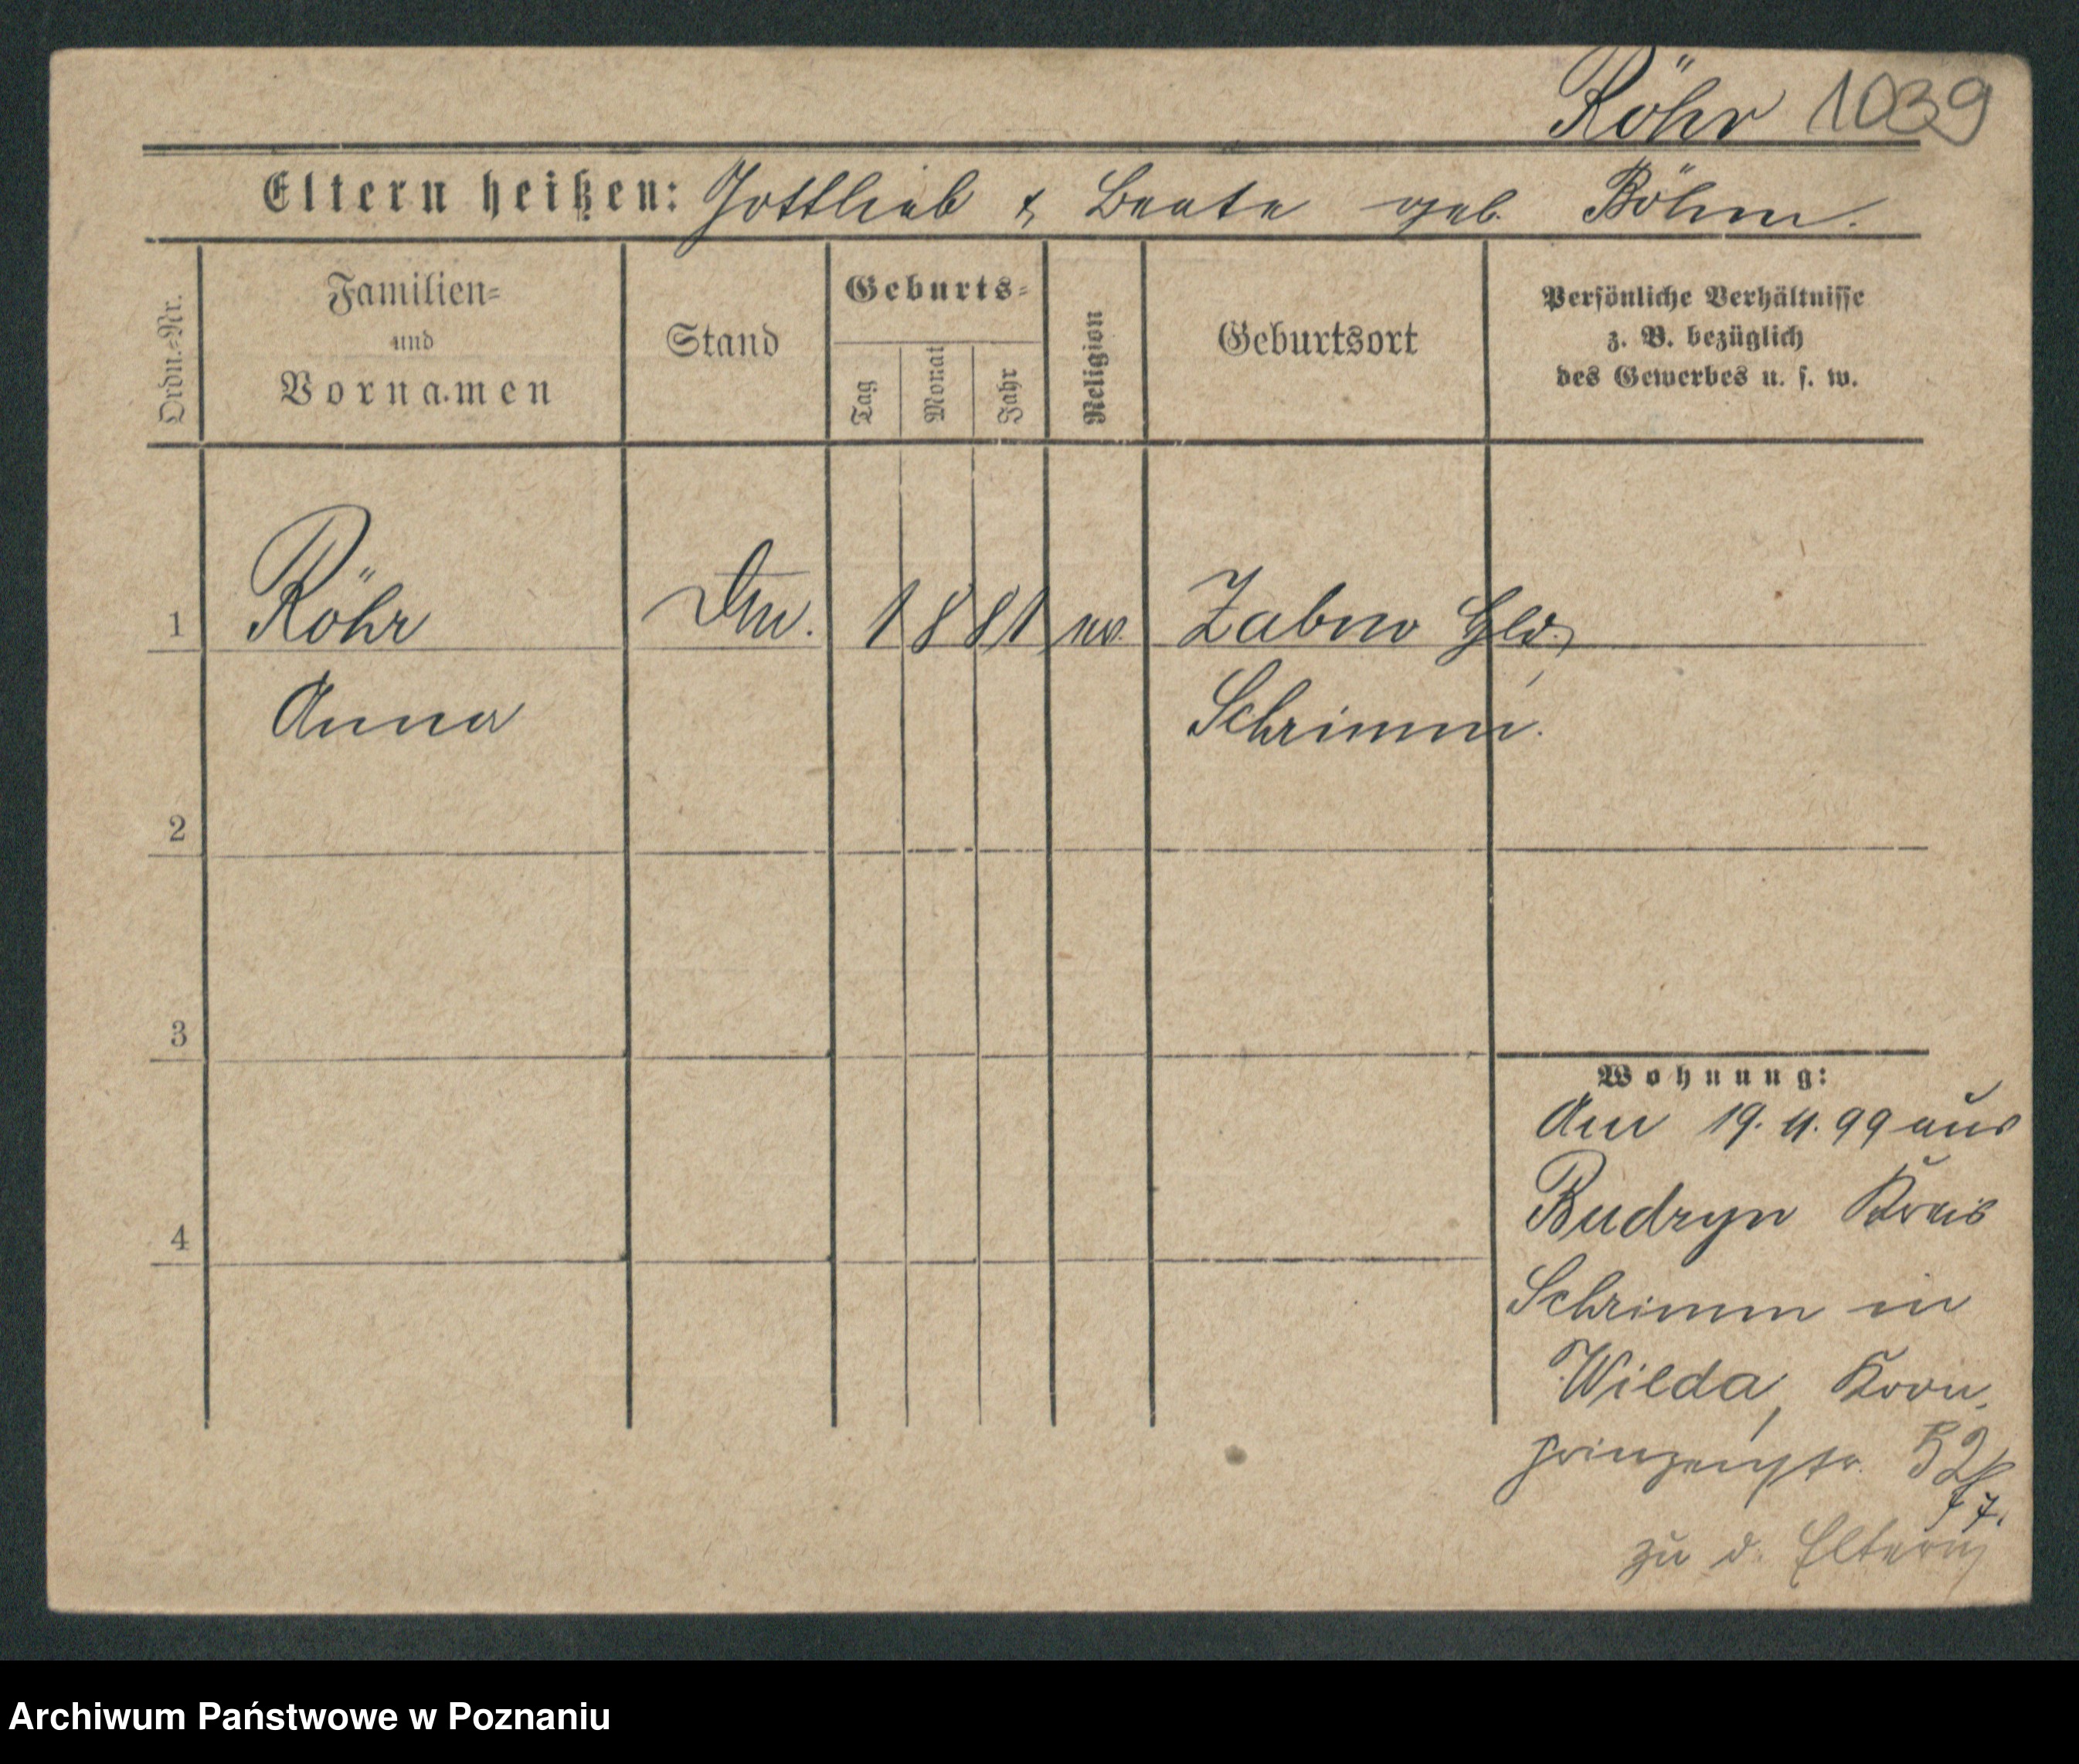 Röhr 1039
Eltern heißen: Gottlieb & Beate geb. Böhm.
Ordn.-Nr.
Familien-
und
Vornamen
Stand
Geburts-
Tag
Monat
Jahr
Religion
Geburtsort
Persönliche Verhältnisse
z. B. bezüglich
des Gewerbes u. s. w.
1 Röhr 1881 ev. Zabno
Anna Schrimm.
2
3
4
Wohnung:
Am 19. 11. 99 aus
Budzyn Kreis
Schrimm in
Wilda, Kron-
prinzenstr. 52
zu d. Eltern
Archiwum Państwowe w Poznaniu